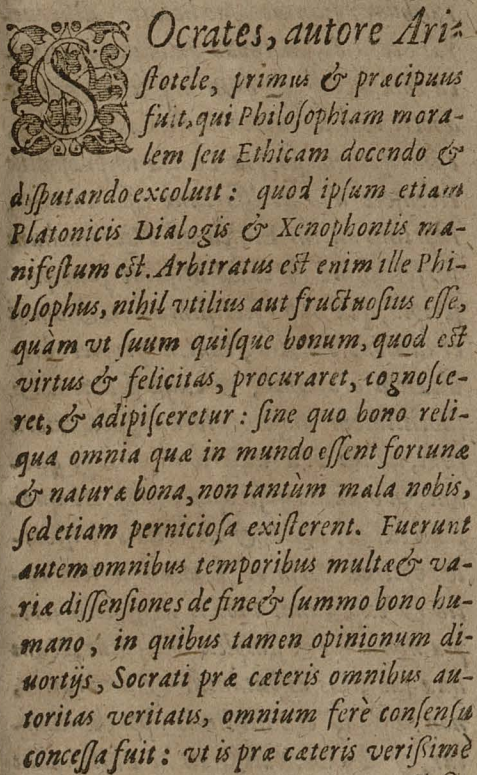 SOcrates, autore Ari-
ſtotele, primus & præcipuus
fuit, qui Philoſophiam mora-
lem ſeu Ethicam docendo &
diſputando excoluit: quod ipſum etiam
Platonicis Dialogis & Xenophontis ma-
nifeſtum eſt. Arbitratus eſt enim ille Phi-
loſophus, nihil vtilius aut fructuoſius eſſe,
quàm vt ſuum quiſque bonum, quod eſt
virtus & felicitas, procuraret, cognoſce-
ret, & adipiſceretur: ſine quo bono reli-
qua omnia quæ in mundo eſſent fortunæ
& naturæ bona, non tantùm mala nobis,
ſed etiam pernicioſa exiſterent. Fuerunt
autem omnibus temporibus multæ & va-
riæ diſſenſiones de fine & ſummo bono hu-
mano, in quibus tamen opinionum di-
uortijs, Socrati præ cæteris omnibus au-
toritas veritatis, omnium ferè conſenſu
conceſſa fuit: vt is præ cæteris veriſsimè